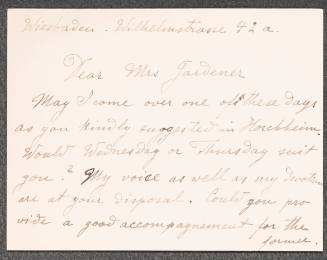 Wiesbaden. Wilhelmstrasse 42 a.
Dear Mrs Gardener
May I come over one of these days
as you kindly suggested in Horchheim.
Would Wednesday or Thursday suit
you? My voice as well as my devotion
are at your disposal. Could you pro
vide a good accompagnement for the
former.